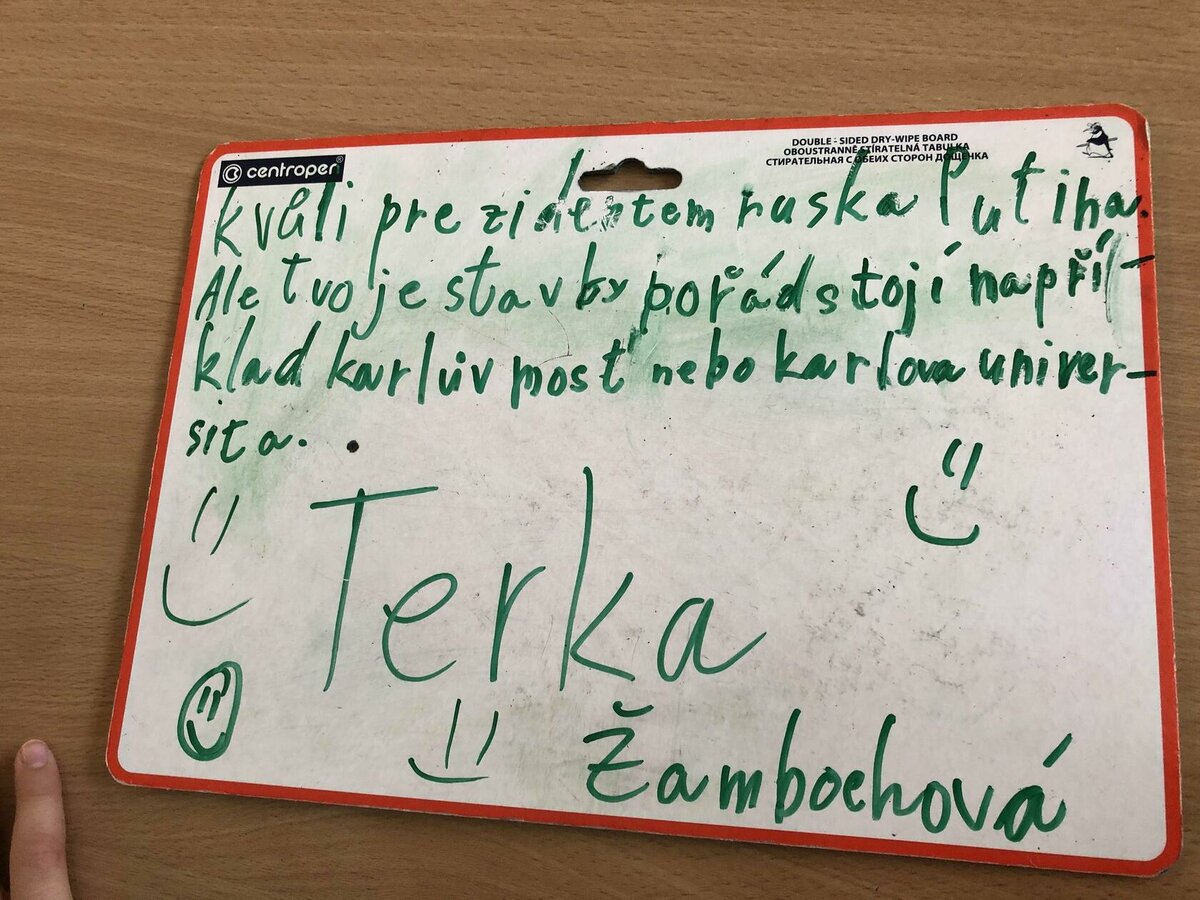 centropen®
DOUBLE - SIDED DRY-WIPE BOARD
OBOUSTRANNĚ STÍRATELNÁ TABULKA
СТИРАТЕЛЬНАЯ С ОБЕИХ СТОРОН ДОЩЕНКА
kvůli prezidentem ruska Putina.
Ale tvoje stavby pořád stojí napří-
klad karlův mosť nebo karlova univer-
sita.
Terka
Žambochová